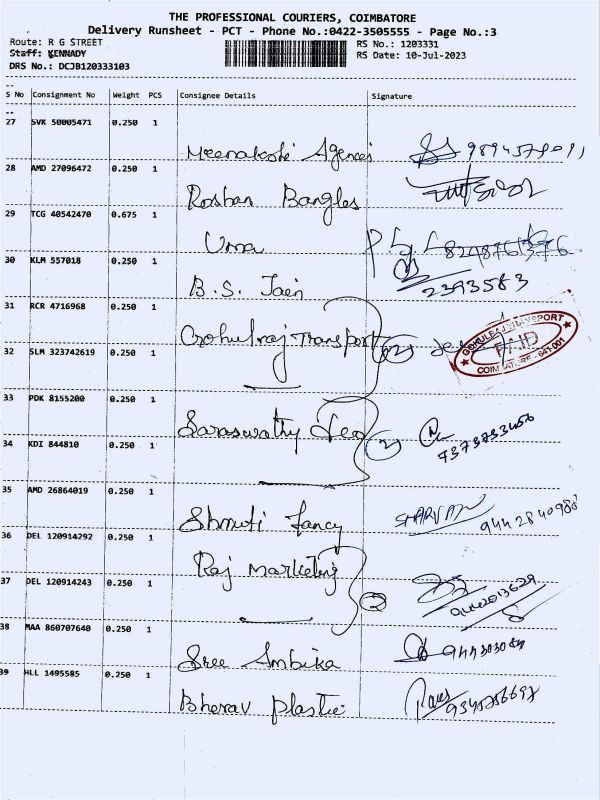 THE PROFESSIONAL COURIERS, COIMBATORE
Delivery Runsheet - PCT - Phone No.:0422-3505555 - Page No.:3
Route: R G STREET RS No.: 1203331
Staff: KENNADY RS Date: 10-Jul-2023
DRS No.: DCJB120333103
S No Consignment No Weight PCS Consignee Details Signature
27 SVK 50005471 0.250 1
Meenakshi Agencies
28 AMD 27096472 0.250 1
Roshan Bangles
29 TCG 40542470 0.675 1
Uma
30 KLM 557018 0.250 1
B.S. Jain 2393583
31 RCR 4716968 0.250 1
Gohulraj Transport 2
GOHULRAJ TRANSPORT
PAID
COIMBATORE - 641 001
32 SLM 323742619 0.250 1
33 PDK 8155200 0.250 1
Saraswathy Leo 2
34 KDI 844810 0.250 1
35 AMD 26864019 0.250 1
Shruti Fancy SHARVAN 9442840988
36 DEL 120914292 0.250 1
Raj Marketing 2
37 DEL 120914243 0.250 1
38 MAA 860707640 0.250 1
Sree Ambika
39 HLL 1495585 0.250 1
Bherav Plastic